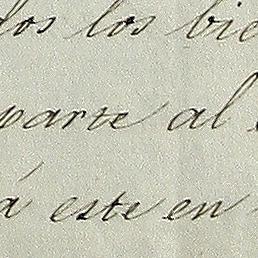 dos los bie
parte al
á este en